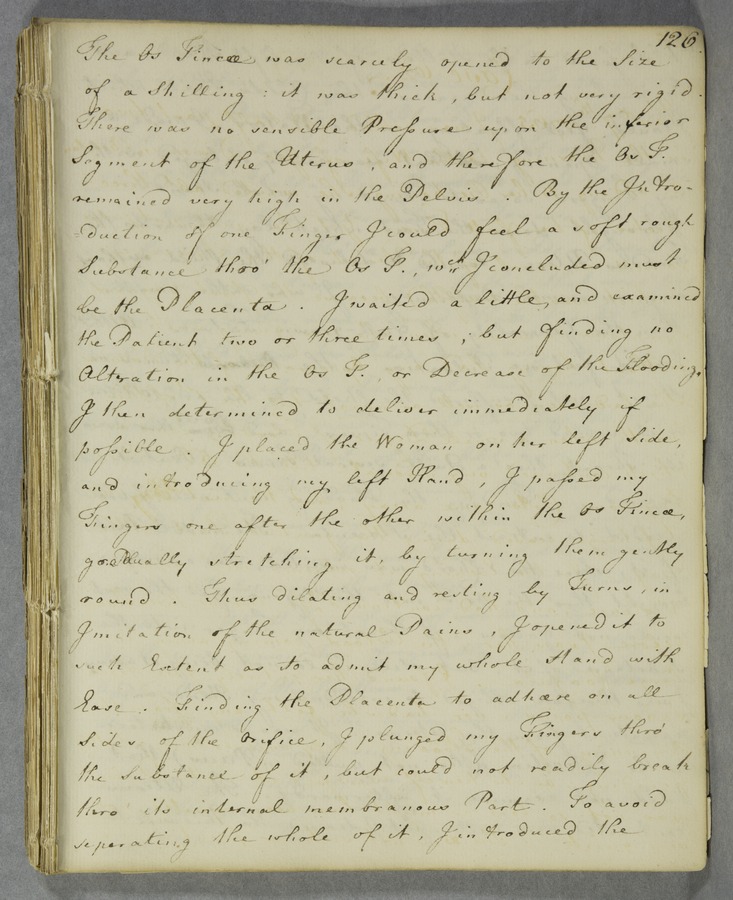 126
The Os Tincæ was scarcely opened to the Size
of a Shilling : it was thick, but not very rigid.
There was no sensible Pressure upon the inferior
Segment of the Uterus, and therefore the Os T.
remained very high in the Pelvis. By the Intro-
=duction of one Finger I could feel a soft rough
Substance thro' the Os T., wch I concluded must
be the Placenta. I waited a little, and examined
the Patient two or three times ; but finding no
Alteration in the Os T. or Decrease of the Flooding,
I then determined to deliver immediately if
possible. I placed the Woman on her left Side,
and introducing my left Hand, I passed my
Fingers one after the other within the Os Tincæ,
gradually stretching it, by turning them gently
round. Thus dilating and resting by Turns, in
Imitation of the natural Pains, I opened it to
such Extent as to admit my whole Hand with
Ease. Finding the Placenta to adhære on all
Sides of the Orifice, I plunged my Fingers thro'
the Substance of it, but could not readily break
thro' its internal membranous Part. To avoid
seperating the whole of it, I introduced the